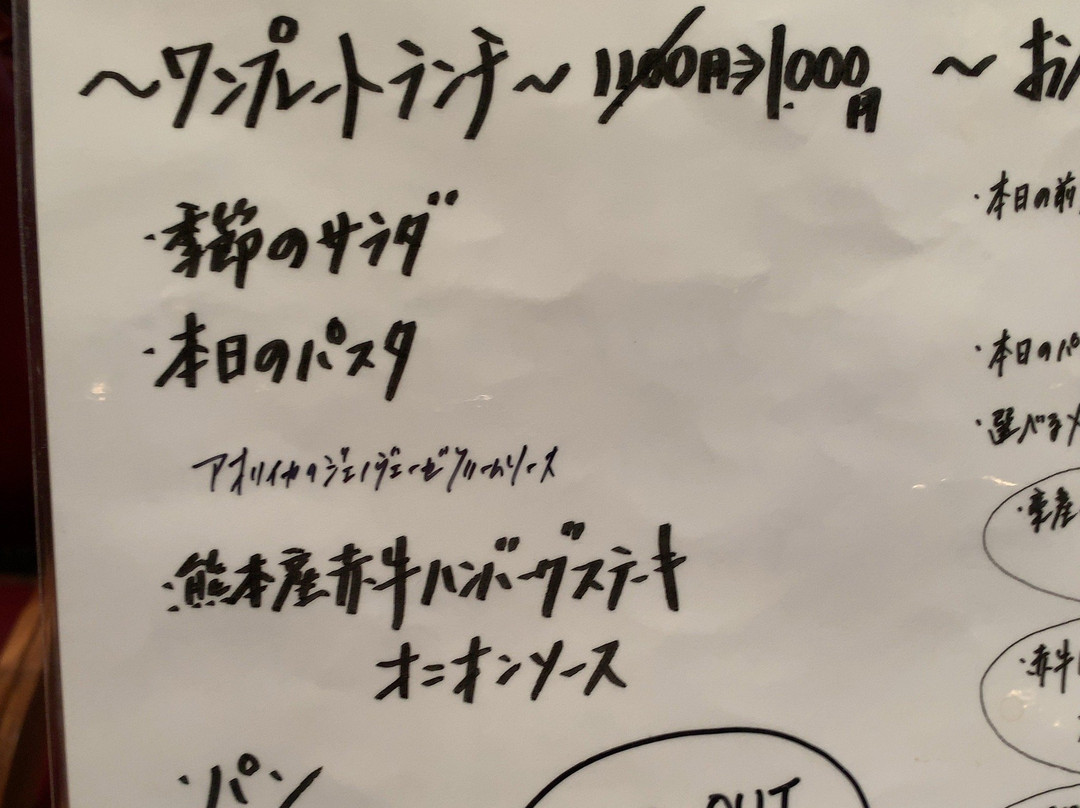 ～ワンプレートランチ～ 1,100円⇒1,000円
・季節のサラダ
・本日のパスタ
アオリイカのジェノヴェーゼクリームソース
・熊本産赤牛ハンバーグステーキ
オニオンソース
・パン
OUT
～お
・本日の前
・本日のパ
・選べるメ
・赤牛